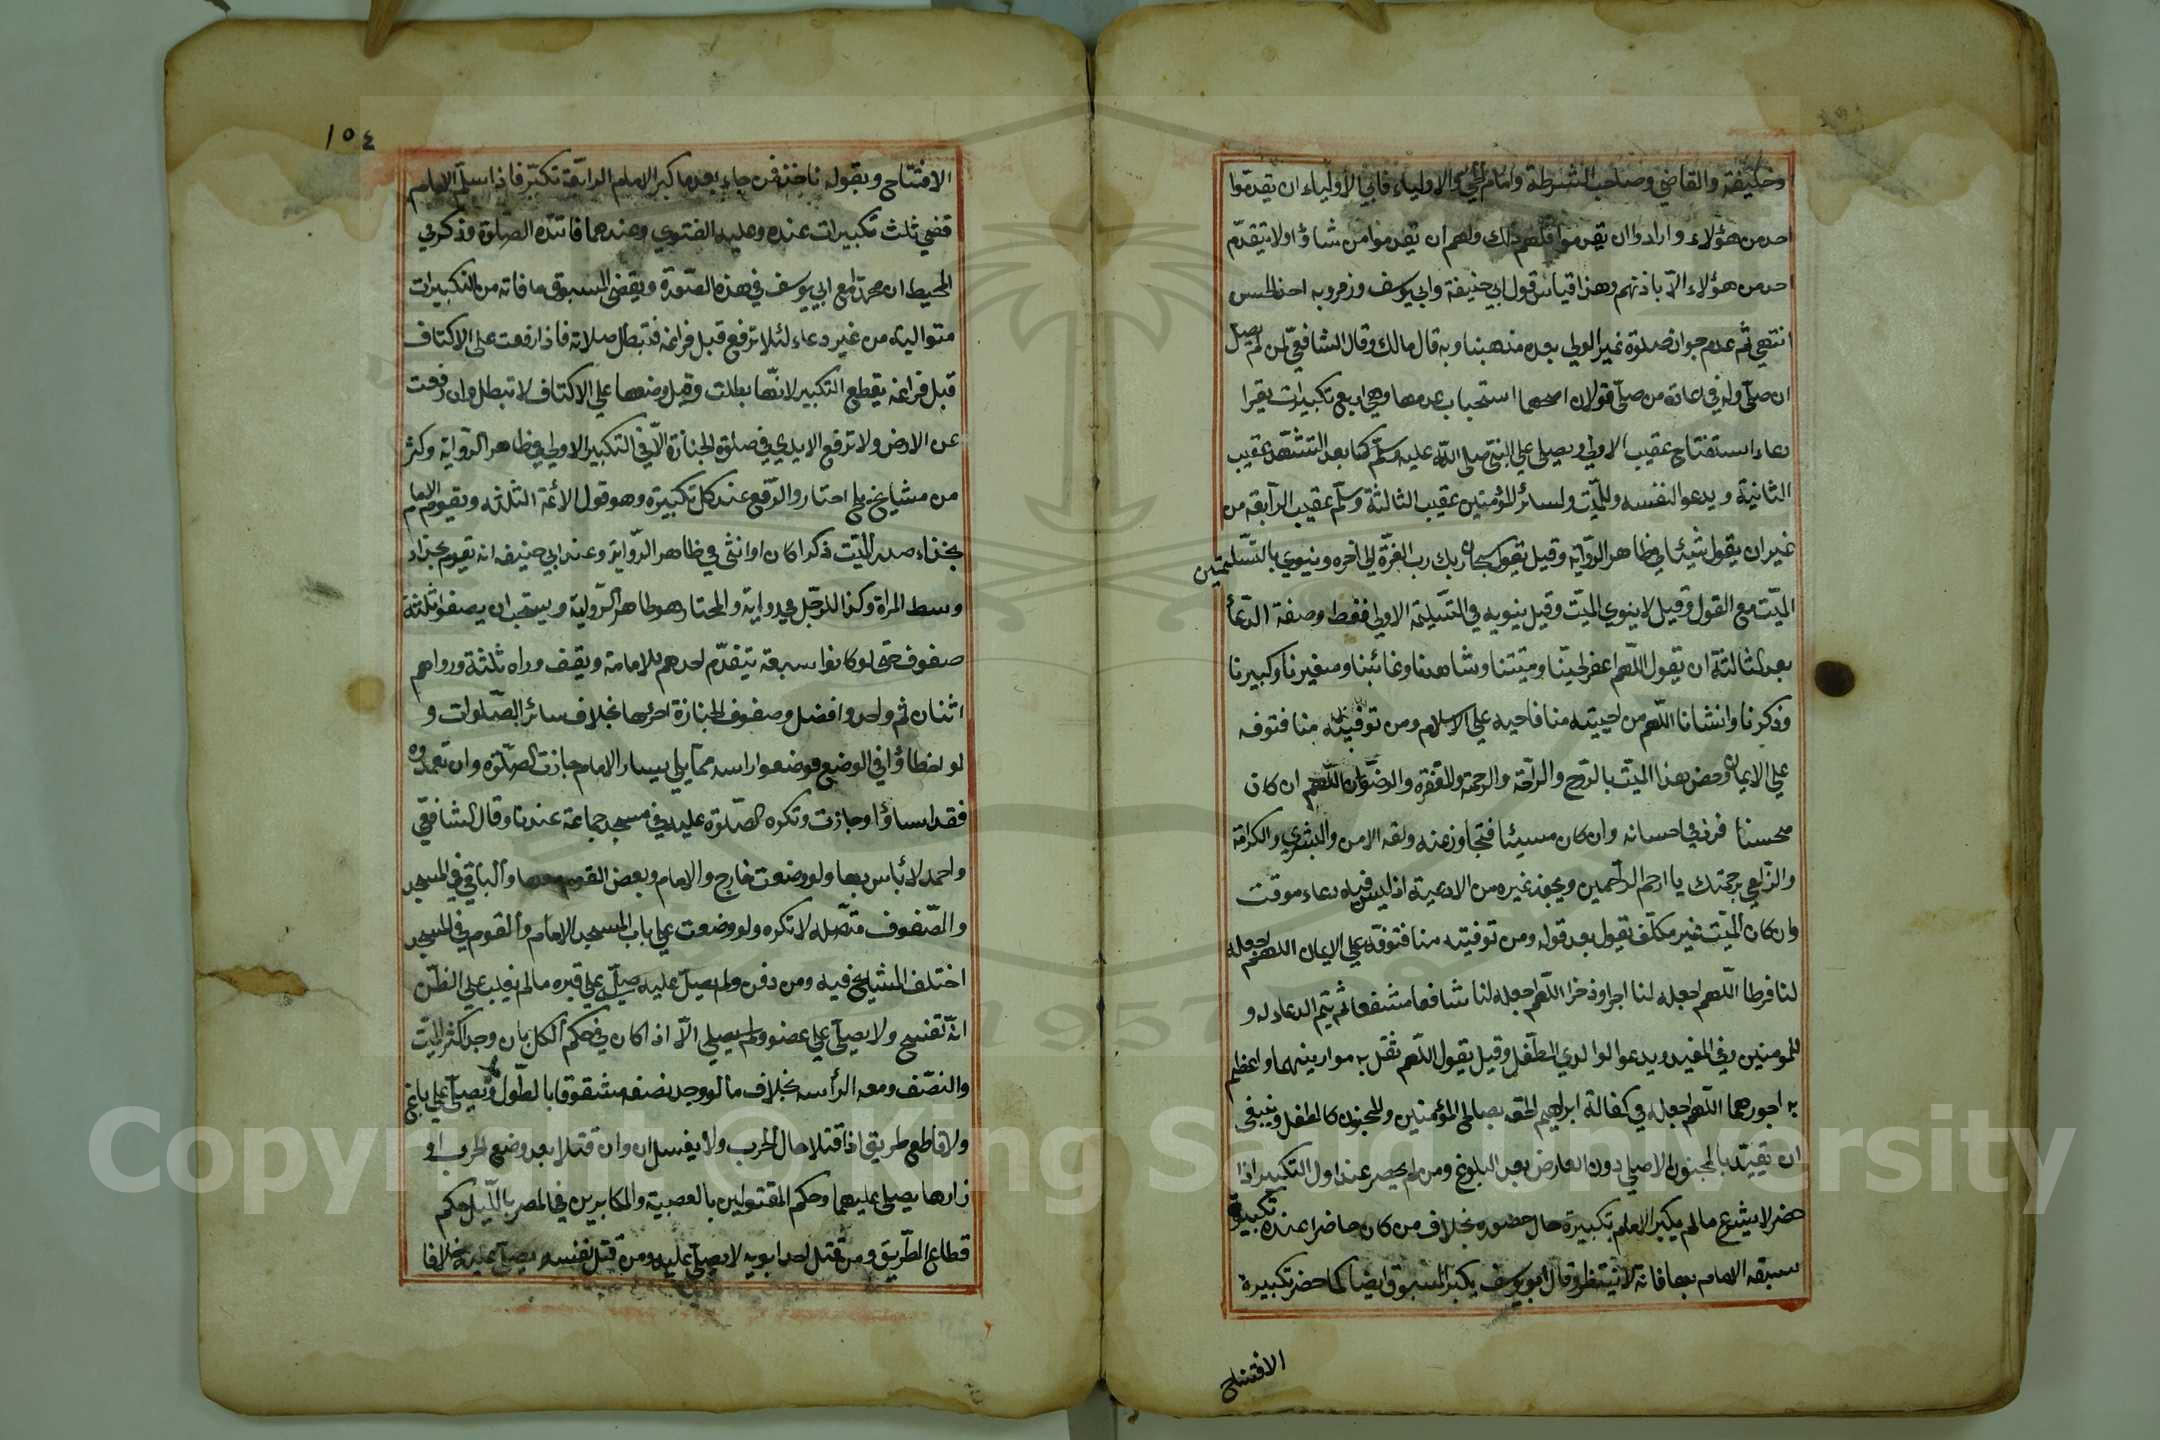 وخليفة والقاضي وصاحب الشرطة وامام الحي والاولياء فابي الأولياء ان يقدموا
احد من هؤلاء وارادوا ان يتقدموا فلهم ذلك ولهم ان يقدموا من شاؤا ولا يتقدم
احد من هؤلاء الا باذنهم وهذا قياس قول ابي حنيفة وابي يوسف وزفر وبه اخذ الحسن
انتهي ثم عدم جواز صلوة غير الولي بعده مذهبنا وبه قال مالك وقال الشافعي لمن لم يصل
ان صلي وله في اعادة من صلي قولان اصحهما استحباب عدمها وهي اربع تكبيرات يقرا
دعاء استفتاح عقيب الاولي ويصلي علي النبي صلي الله عليه وسلم كما بعد التشهد عقيب
الثانية ويدعوا لنفسه وللميت ولسائر المؤمنين عقيب الثالثة وسلم عقيب الرابعة من
غير ان يقول شيئا في ظاهر الرواية وقيل يقول سبحان ربك رب العزة الي اخره وينوي بالتسليمتين
الميت مع القول وقيل لا ينوي الميت وقيل ينويه في التسليمة الاولي فقط وصفة الدعأ
بعد الثالثة ان يقول اللهم اغفر لحينا وميتنا وشاهدنا وغائبنا وصغيرنا وكبيرنا
وذكرنا وانثانا اللهم من احييته منا فاحيه علي الاسلام ومن توفيته منا فتوفه
علي الايمان وخص هذا الميت بالروح والراحة والرحمة والمغفرة والرضوان اللهم ان كان
محسنا فزد في احسانه وان كان مسيئا فتجاوز عنه ولقه الامن والبشري والكرامة
والزلفي برحمتك يا ارحم الراحمين ويجوز غيره من الادعية اذ ليس فيه دعاء موقت
وان كان الميت غير مكلف يقول بعد قوله ومن توفيته منا فتوفه علي الايمان اللهم اجعله
لنا فرطا اللهم اجعله لنا اجرا وذخرا اللهم اجعله لنا شافعا مشفعا ثم يتم الدعاء له و
للمومنين وفي المفيد ويدعو لوالدي الطفل وقيل يقول اللهم ثقل به موازينهما واعظم
به اجورهما اللهم اجعله في كفالة ابراهيم الحقه بصالحي المؤمنين والمجنون كالطفل وينبغي
ان يقيد بالمجنون الاصلي دون العارض بعد البلوغ ومن لم يحضر عند اول التكبير اذا
حضر لا يشرع ما لم يكبر الامام تكبيرة حال حضوره بخلاف من كان حاضرا عنده تكبيرة
سبقه الامام بها فانه لا ينتظر وقال ابو يوسف يكبر المسبوق ايضا كما حضر تكبيرة
الافتتاح
١٥٤
الافتتاح وبقوله ناخذ فمن جاء بعد ما كبر الامام الرابعة تكبر فاذا سلم الامام
قضي ثلث تكبيرات عنده وعليه الفتوي وعندهما فاتته الصلوة وذكر في
المحيط ان محمدا مع ابي يوسف في هذه الصورة ويقضي المسبوق ما فاته من التكبيرات
متوالية من غير دعاء لئلا ترفع قبل فراغه فتبطل صلاته فاذا رفعت علي الاكتاف
قبل فراغه يقطع التكبير لانها بطلت وقبل وضعها علي الاكتاف لا تبطل وان رفعت
عن الارض ولا ترفع الايدي في صلوة الجنازة الا في التكبير الاولي في ظاهر الرواية وكثر
من مشايخ بلخ اختاروا الرفع عند كل تكبيرة وهو قول الأئمة الثلثه ويقوم الامام
بحذاء صدر الميت ذكرا كان او انثي في ظاهر الرواية وعند ابي حنيفه انه يقوم بحذاء
وسط المراة وكذا الرجل في رواية والمختار هو ظاهر الرواية ويستحب ان يصفوا ثلثة
صفوف حتى لو كانوا سبعة يتقدم احدهم للامامة ويقف وراه ثلثة ورواهم
اثنان ثم واحد وافضل صفوف الجنازة اخرها بخلاف سائر الصلوات و
لو اخطاؤا في الوضع فوضعوا راسه مما يلي يسار الامام جازت الصلوة وان تعمدوه
فقد اساؤا وجازت وتكره الصلوة عليه في مسجد جماعة عندنا وقال الشافعي
واحمد لا باس بها ولو وضعت خارج والامام وبعض القوم معها والباقي في المسجد
والصفوف متصله لا تكره ولو وضعت علي باب المسجد الامام والقوم في المسجد
اختلف المشايخ فيه ومن دفن ولم يصل عليه صلي علي قبره ما لم يغلب علي الظن
انه تفسخ ولا يصلي علي عضو ولم يصلي الا اذا كان في حكم الكل بان وجد اكثر الميت
والنصف ومعه الرأس بخلاف ما لو وجد نصفه مشقوقا بالطول ولا يصلي علي باغ
ولا قاطع طريق اذا قتلا حال الحرب ولا يغسلان وان قتلا بعد وضع الحرب او
زارها يصلي عليهما وحكم المقتولين بالعصبية والمكابرين في المصر بالليل حكم
قطاع الطريق ومن قتل احد ابويه لا يصلي عليه ومن قتل نفسه يصلي عليه خلافا
Copyright © King Saud University
1957